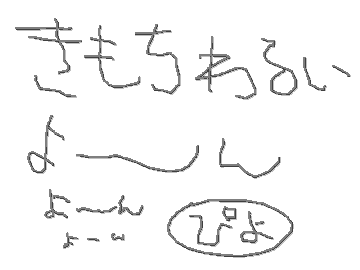 きもちわるい
よ〜〜ん
よ〜ん ぴよ
よーん